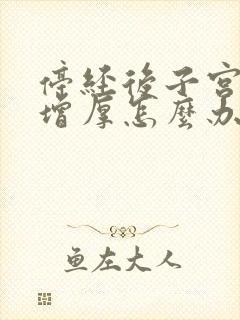 停經後子宮
增厚怎麼办
鱼左大人